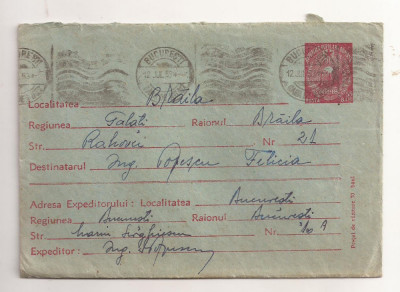 BUCUREȘTI
12 IUL 5
Localitatea Brăila
Regiunea Galați Raionul Brăila
Str. Rahovei Nr 21
Destinatarul Ing. Popescu Felicia
Adresa Expeditorului: Localitatea București
Regiunea București Raionul București
Str. Nr. A
Expeditor: Ing. Popescu